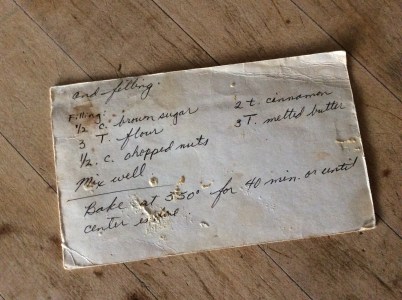 and filling.
Filling:
1/2 c. brown sugar 2 t. cinnamon
3 T. flour 3 T. melted butter
1/2. c. chopped nuts
Mix well
Bake at 350° for 40 min. or until
center is